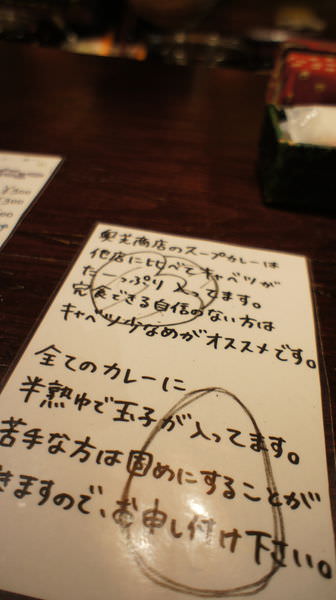 奥芝商店のスープカレーは
他店に比べてキャベツが
たーっぷり入ってます。
完食できる自信のない方は
キャベツ少なめがオススメです。
全てのカレーに
半熟ゆで玉子が入ってます。
苦手な方は固めにすることが
きますので、お申し付け下さい。
¥300